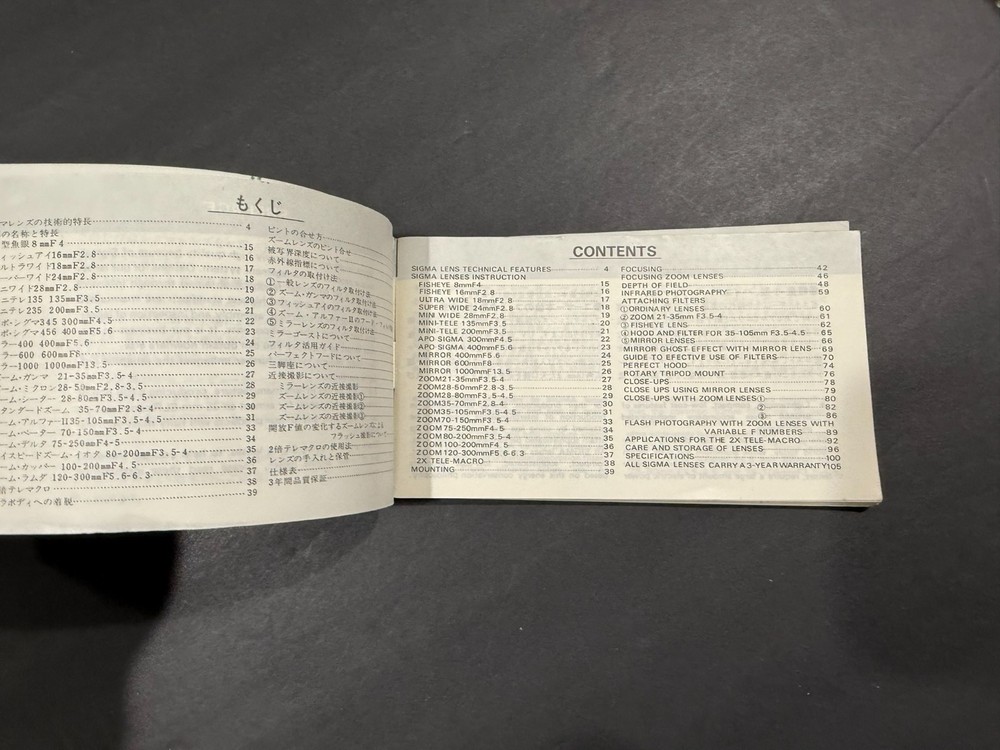 もくじ
マレンズの技術的特長 4
の名称と特長
型魚眼8mmF4 15
ィッシュアイ16mmF2.8 16
ルトラワイド18mmF2.8 17
ーパーワイド24mmF2.8 18
ニワイド28mmF2.8 19
ニテレ135 135mmF3.5 20
ニテレ235 200mmF3.5 21
ポ・シグマ345 300mmF4.5 22
ポ・シグマ456 400mmF5.6 23
ラー400 400mmF5.6 24
ラー600 600mmF8 25
ラー1000 1000mmF13.5 26
ーム・ガンマ 21-35mmF3.5-4 27
ーム・ミクロン28-50mmF2.8-3.5 28
ーム・シーター 28-80mmF3.5-4.5 29
タンダードズーム 35-70mmF2.8-4 30
ーム・アルファーII35-105mmF3.5-4.5 31
ーム・ベーター 70-150mmF3.5-4 33
ーム・デルタ 75-250mmF4-5 34
イスピードズーム・イオタ 80-200mmF3.5-4 35
ーム・カッパー 100-200mmF4.5 36
ーム・ラムダ 120-300mmF5.6-6.3 37
倍テレマクロ 38
ラボディへの着脱 39
ピントの合せ方
ズームレンズのピント合せ
被写界深度について
赤外線指標について
フィルタの取付け法
①一般レンズのフィルタ取付け法
②ズーム・ガンマのフィルタ取付け法
③フィッシュアイのフィルタ取付け法
④ズーム・アルファーIIのフード・フィルタ
⑤ミラーレンズのフィルタ取付け法
ミラーゴーストについて
フィルタ活用ガイド
パーフェクトフードについて
三脚座について
近接撮影について
ミラーレンズの近接撮影
ズームレンズの近接撮影①
ズームレンズの近接撮影②
ズームレンズの近接撮影③
開放F値の変化するズームレンズによる
フラッシュ撮影について
2倍テレマクロの使用法
レンズの手入れと保管
仕様表
3年間品質保証
CONTENTS
SIGMA LENS TECHNICAL FEATURES 4
SIGMA LENSES INSTRUCTION
FISHEYE 8mmF4 15
FISHEYE 16mmF2.8 16
ULTRA WIDE 18mmF2.8 17
SUPER WIDE 24mmF2.8 18
MINI WIDE 28mmF2.8 19
MINI-TELE 135mmF3.5 20
MINI-TELE 200mmF3.5 21
APO SIGMA 300mmF4.5 22
APO SIGMA 400mmF5.6 23
MIRROR 400mmF5.6 24
MIRROR 600mmF8 25
MIRROR 1000mmF13.5 26
ZOOM21-35mmF3.5-4 27
ZOOM28-50mmF2.8-3.5 28
ZOOM28-80mmF3.5-4.5 29
ZOOM35-70mmF2.8-4 30
ZOOM35-105mmF3.5-4.5 31
ZOOM70-150mmF3.5-4 33
ZOOM75-250mmF4-5 34
ZOOM80-200mmF3.5-4 35
ZOOM100-200mmF4.5 36
ZOOM120-300mmF5.6-6.3 37
2X TELE-MACRO 38
MOUNTING 39
FOCUSING 42
FOCUSING ZOOM LENSES 46
DEPTH OF FIELD 48
INFRARED PHOTOGRAPHY 59
ATTACHING FILTERS
①ORDINARY LENSES 60
②ZOOM 21-35mm F3.5-4 61
③FISHEYE LENS 62
④HOOD AND FILTER FOR 35-105mm F3.5-4.5 65
⑤MIRROR LENSES 66
MIRROR GHOST EFFECT WITH MIRROR LENS 69
GUIDE TO EFECTIVE USE OF FILTERS 70
PERFECT HOOD 74
ROTARY TRIPOD MOUNT 76
CLOSE-UPS 78
CLOSE UPS USING MIRROR LENSES 79
CLOSE-UPS WITH ZOOM LENSES① 80
② 82
③ 86
FLASH PHOTOGRAPHY WITH ZOOM LENSES WITH
VARIABLE F NUMBERS 89
APPLICATIONS FOR THE 2X TELE-MACRO 92
CARE AND STORAGE OF LENSES 96
SPECIFICATIONS 100
ALL SIGMA LENSES CARRY A 3-YEAR WARRANTY105